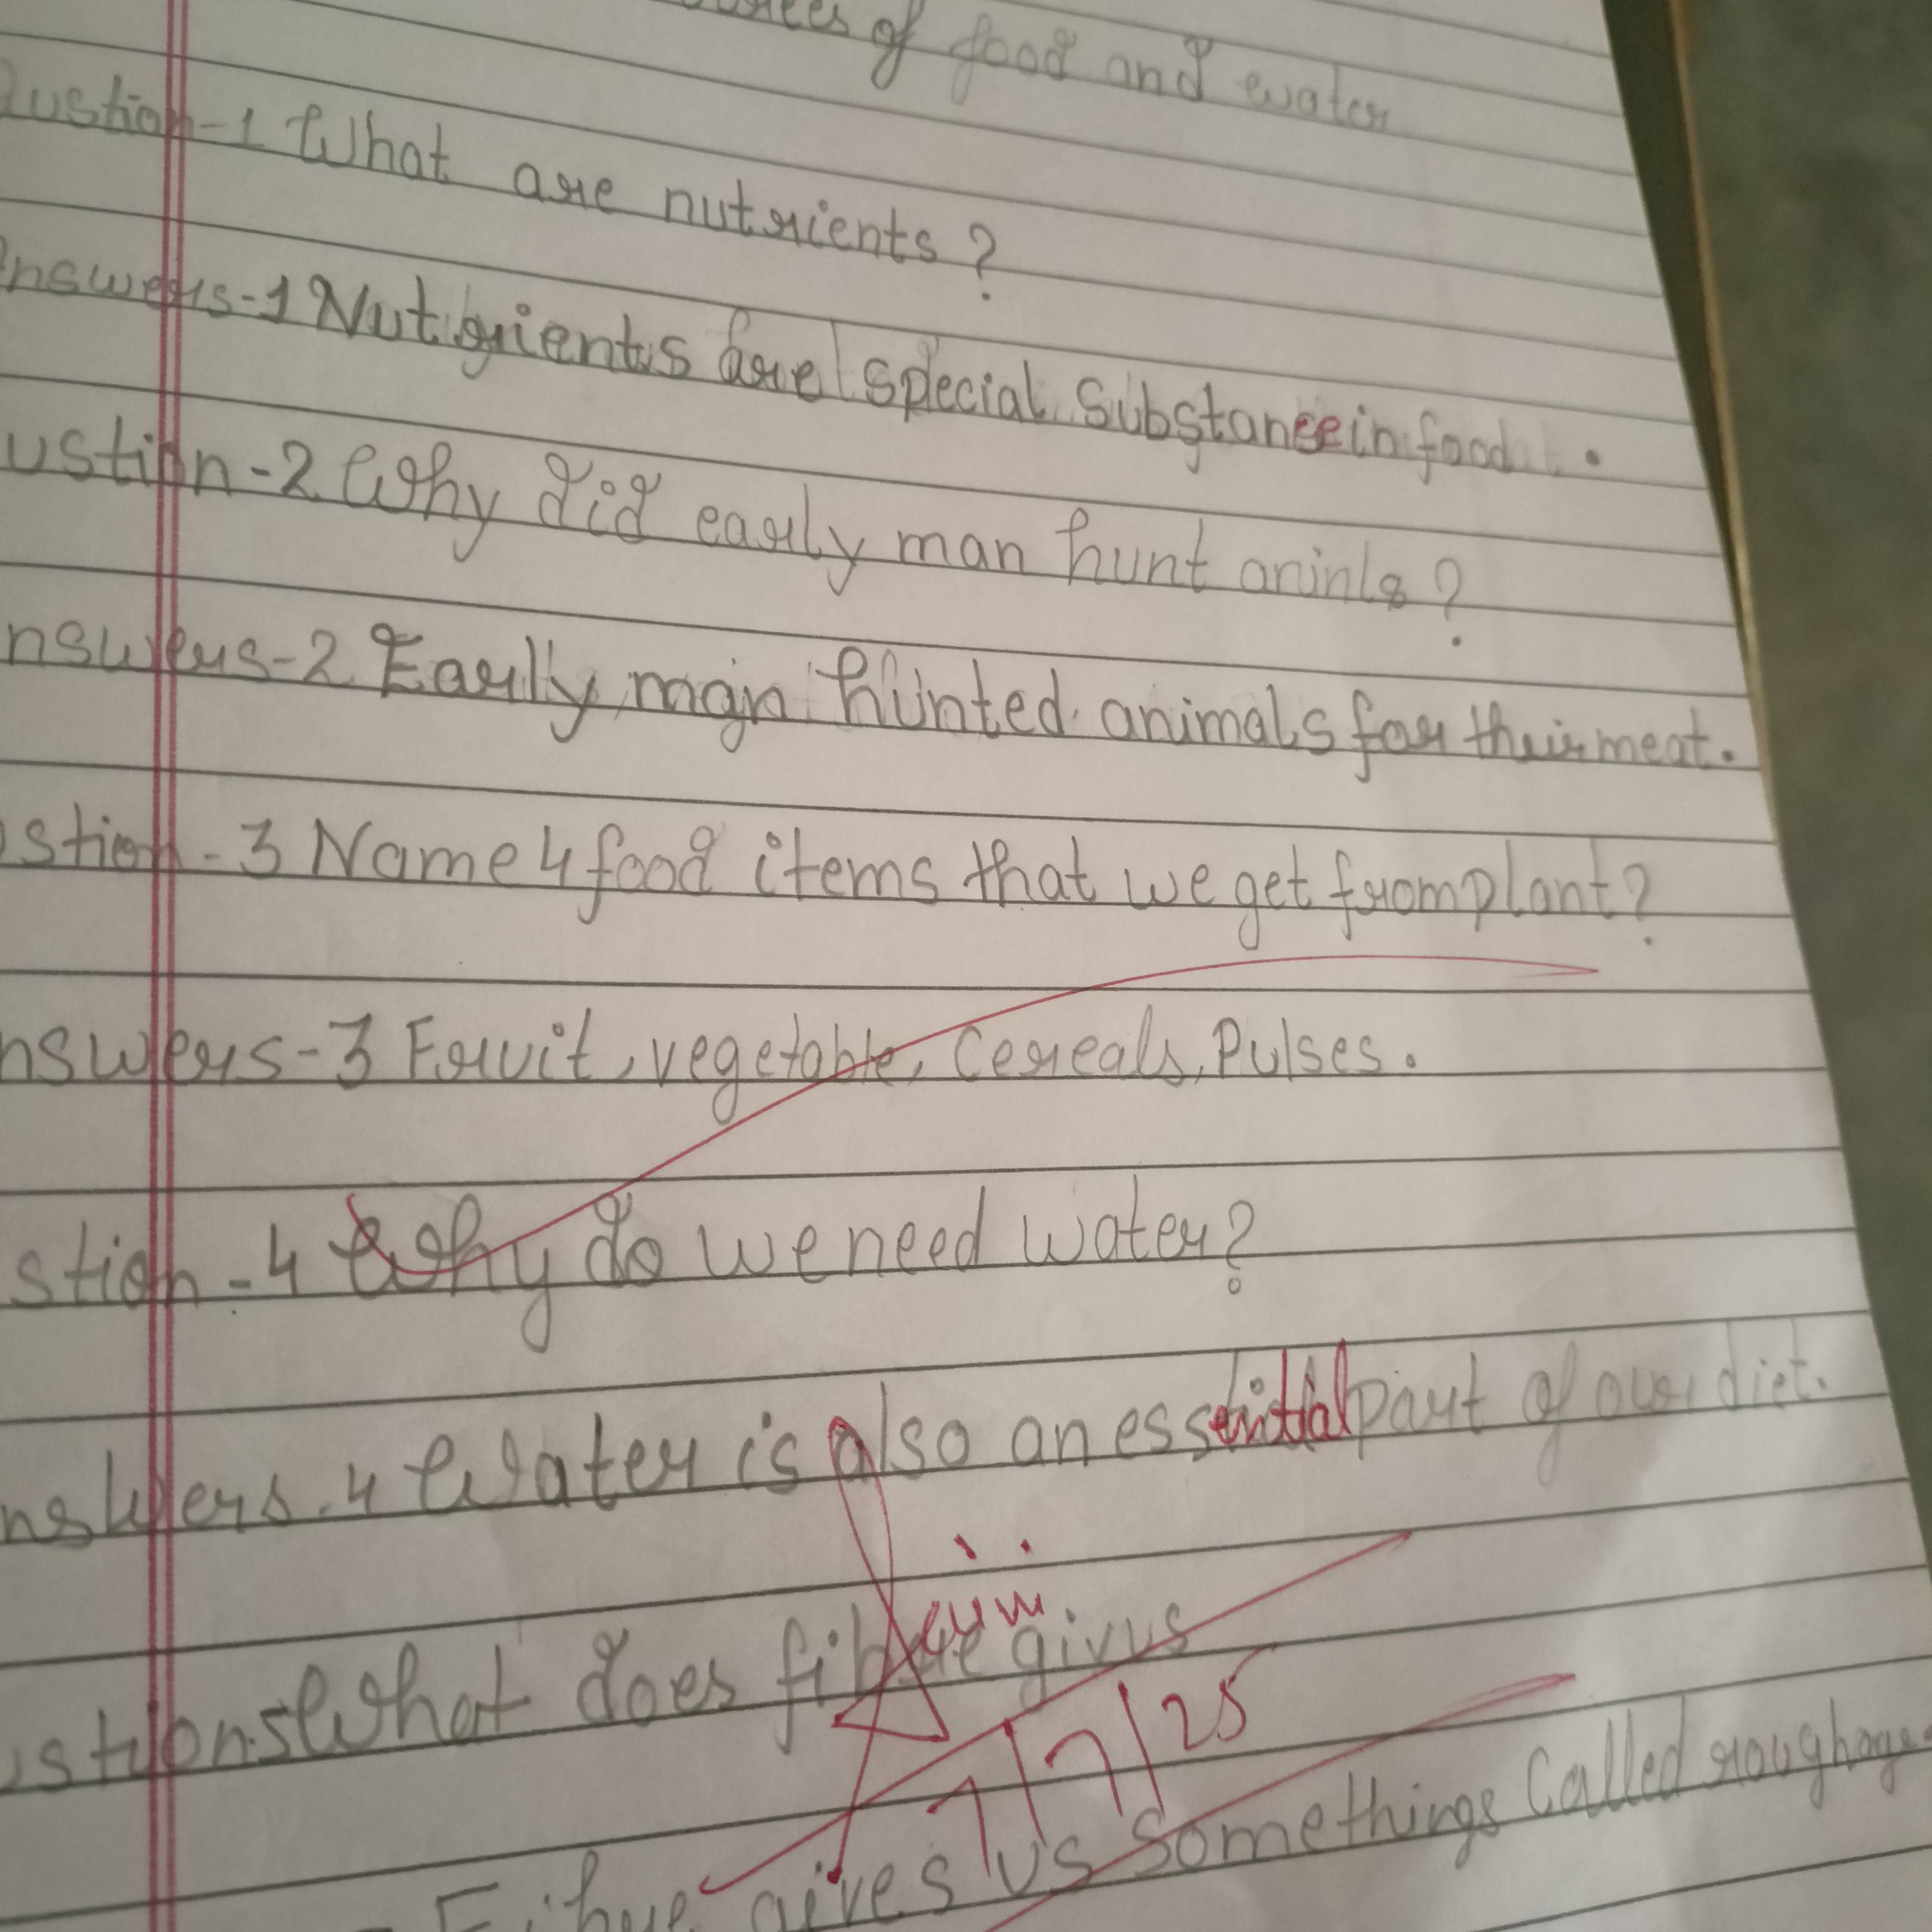 of food and water
ustion-1 What are nutrients?
nswers-1 Nutrients are special Substance in food.
ustion-2 Why did early man hunt aninls?
nswers-2 Early man hunted animals for their meat.
stion-3 Name 4 food items that we get from plant?
nswers-3 Fruit, vegetable, Cereals, Pulses.
stion-4 Why do we need water?
nswers-4 Water is also an essential part of our diet.
stion-5 What does fibre giv us
7/7/25
Fibre gives us Somethings Called roughage